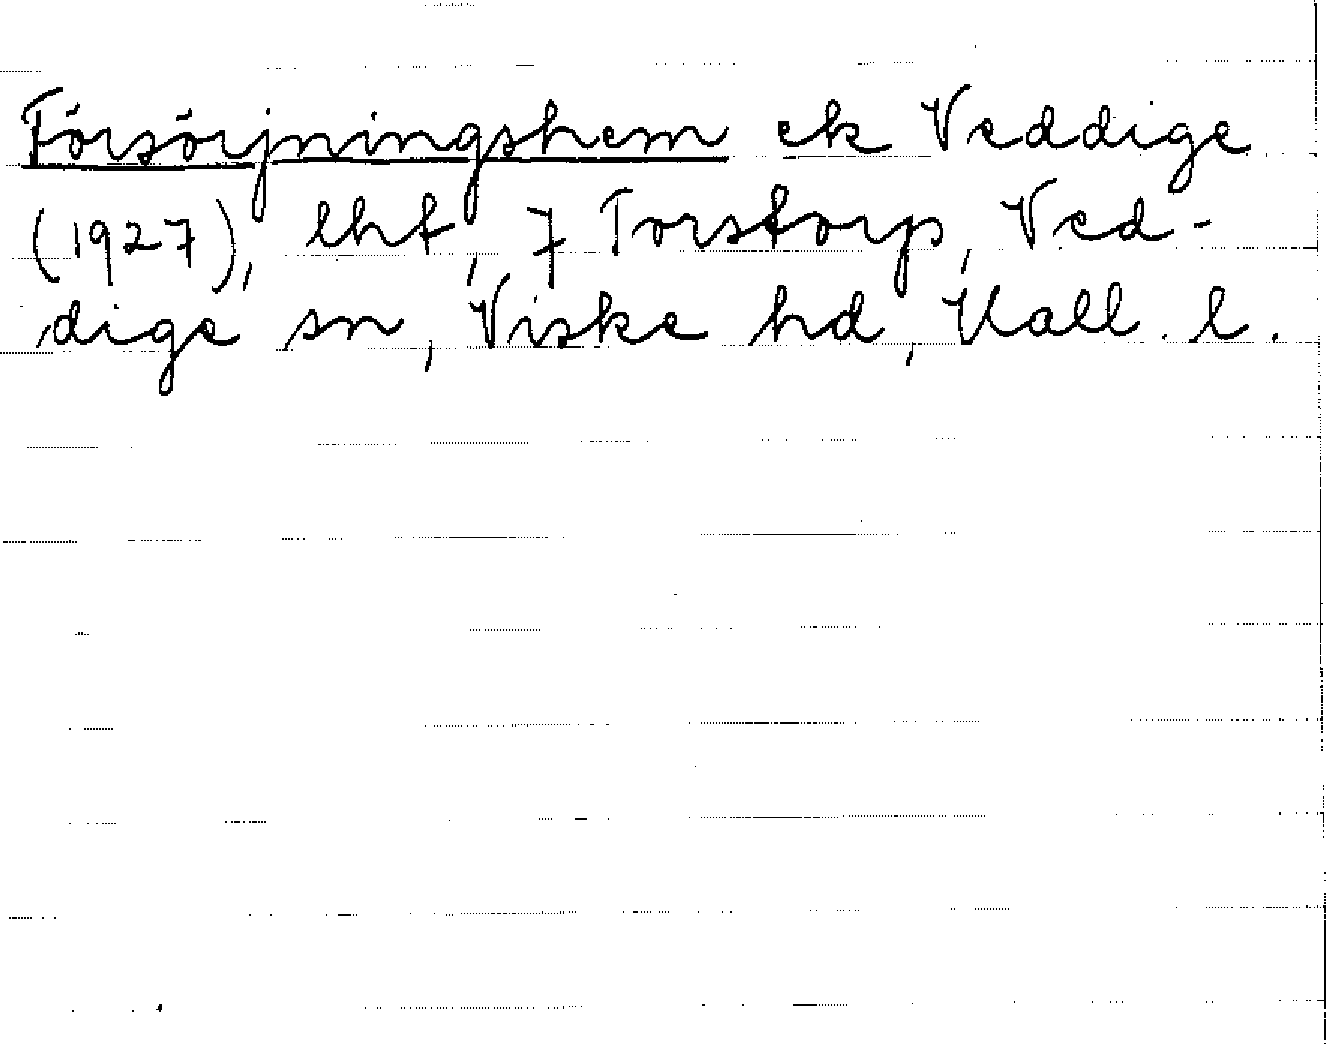 Försörjningshem ek Veddige
(1927), lht, 7 Torstorp, Ved-
dige sn, Viske hd, Hall. l.